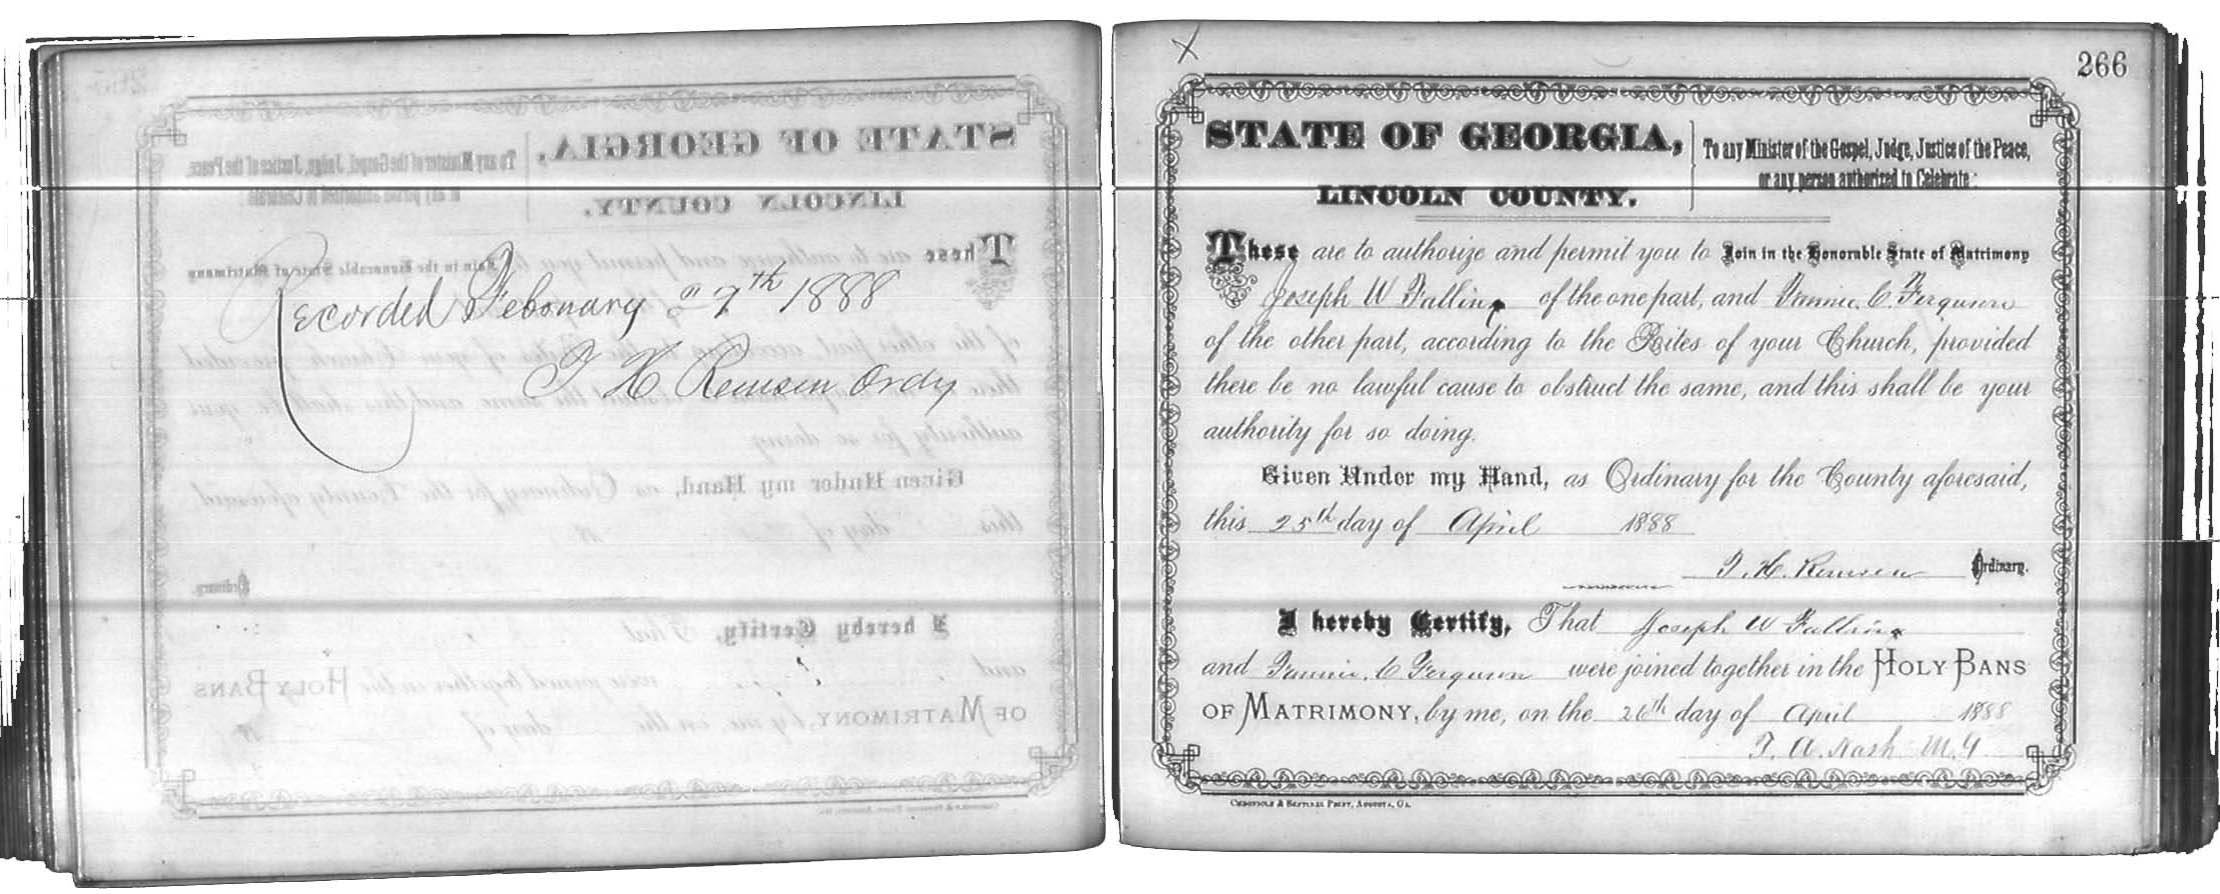 Recorded Febonary 27th 1888
T H Remsen Ordy
X
266
STATE OF GEORGIA,
LINCOLN COUNTY.
To any Minister of the Gospel, Judge, Justice of the Peace,
or any person authorized to Celebrate:
These are to authorize and permit you to Join in the Honorable State of Matrimony
Joseph W Falling of the one part, and Fannie. C. Ferguson
of the other part, according to the Rites of your Church, provided
there be no lawful cause to obstruct the same, and this shall be your
authority for so doing.
Given Under my Hand, as Ordinary for the County aforesaid,
this 25th day of April 1888
T. H. Remsen Ordinary.
I hereby Certify, That Joseph W Falling
and Fannie. C Ferguson were joined together in the HOLY BANS
OF MATRIMONY, by me, on the 26th day of April 1888
T. A. Nash M. G
CHRONICLE & SENTINEL PRINT, AUGUSTA, GA.